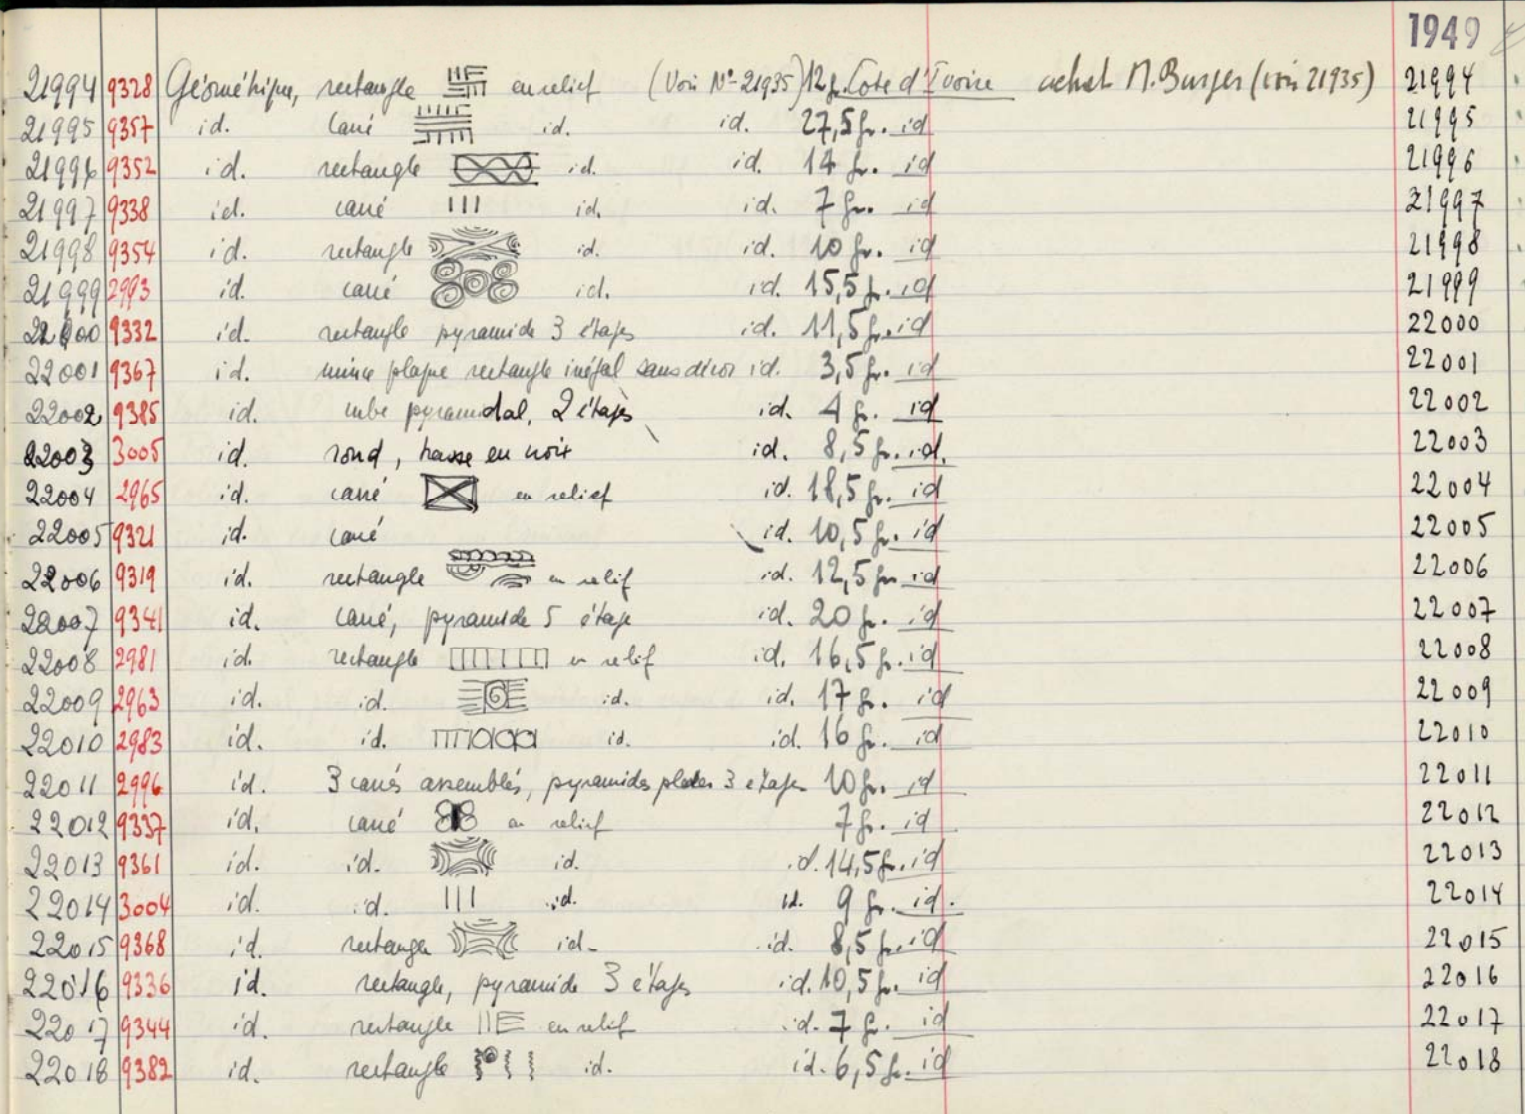 1949
21994 9328 Géométrique, rectangle en relief (Voir N° 21935) 12 gr. Côte d'Ivoire achat M. Burger (voir 21935) 21994
21995 9357 id. carré id. id. 27,5 gr. id 21995
21996 9352 id. rectangle id. id. 14 gr. id 21996
21997 9338 id. carré id. id. 7 gr. id 21997
21998 9354 id. rectangle id. id. 10 gr. id 21998
21999 2993 id. carré id. id. 15,5 gr. id 21999
22000 9332 id. rectangle pyramide 3 étages id. 11,5 gr. id 22000
22001 9367 id. mince plaque rectangle inégal sans décor id. 3,5 gr. id 22001
22002 9385 id. cube pyramidal, 2 étages id. 4 gr. id 22002
22003 3005 id. rond, en id. 8,5 gr. id. 22003
22004 2965 id. carré en relief id. 18,5 gr. id 22004
22005 9321 id. carré id. 10,5 gr. id 22005
22006 9319 id. rectangle en relif id. 12,5 gr id 22006
22007 9341 id. carré, pyramide 5 étage id. 20 gr. id 22007
22008 2981 id. rectangle en relif id. 16,5 gr. id 22008
22009 2963 id. id. id. id. 17 gr. id 22009
22010 2983 id. id. id. id. 16 gr. id 22010
22011 2996 id. 3 carrés assemblés, pyramides plates 3 étages 10 gr. id 22011
22012 9337 id. carré en relief 7 gr. id 22012
22013 9361 id. id. id. id. 14,5 gr. id 22013
22014 3004 id. id. id. id. 9 gr. id. 22014
22015 9368 id. rectangle id. id. 8,5 gr. id 22015
22016 9336 id. rectangle, pyramide 3 étages id. 10,5 gr. id 22016
22017 9344 id. rectangle en relif id. 7 gr. id 22017
22018 9382 id. rectangle id. id. 6,5 gr. id 22018